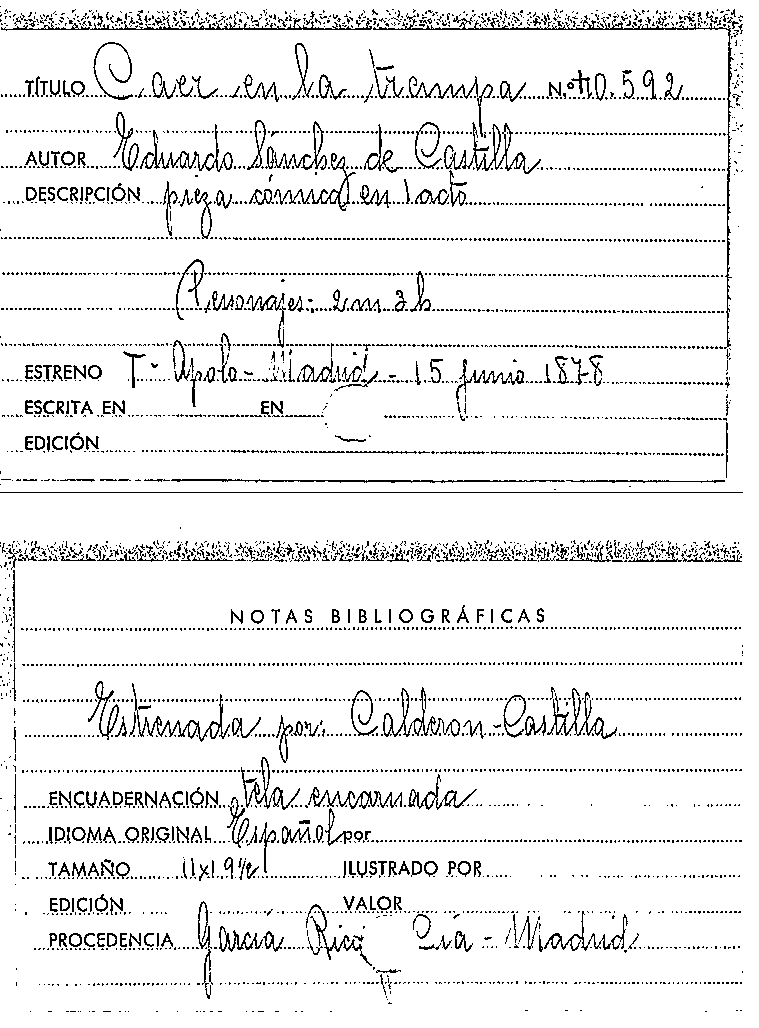 TÍTULO Caer en la trampa N.º 10.592
AUTOR Eduardo Sánchez de Castilla
DESCRIPCIÓN pieza cómica en 1 acto
Personajes: 2 m 3 h
ESTRENO Tº Apolo - Madrid - 15 junio 1878
ESCRITA EN EN
EDICIÓN
NOTAS BIBLIOGRÁFICAS
Estrenada por: Calderon - Castilla
ENCUADERNACIÓN tela encarnada
IDIOMA ORIGINAL Español por
TAMAÑO 11x19½ ILUSTRADO POR
EDICIÓN VALOR
PROCEDENCIA García Rico Cía - Madrid